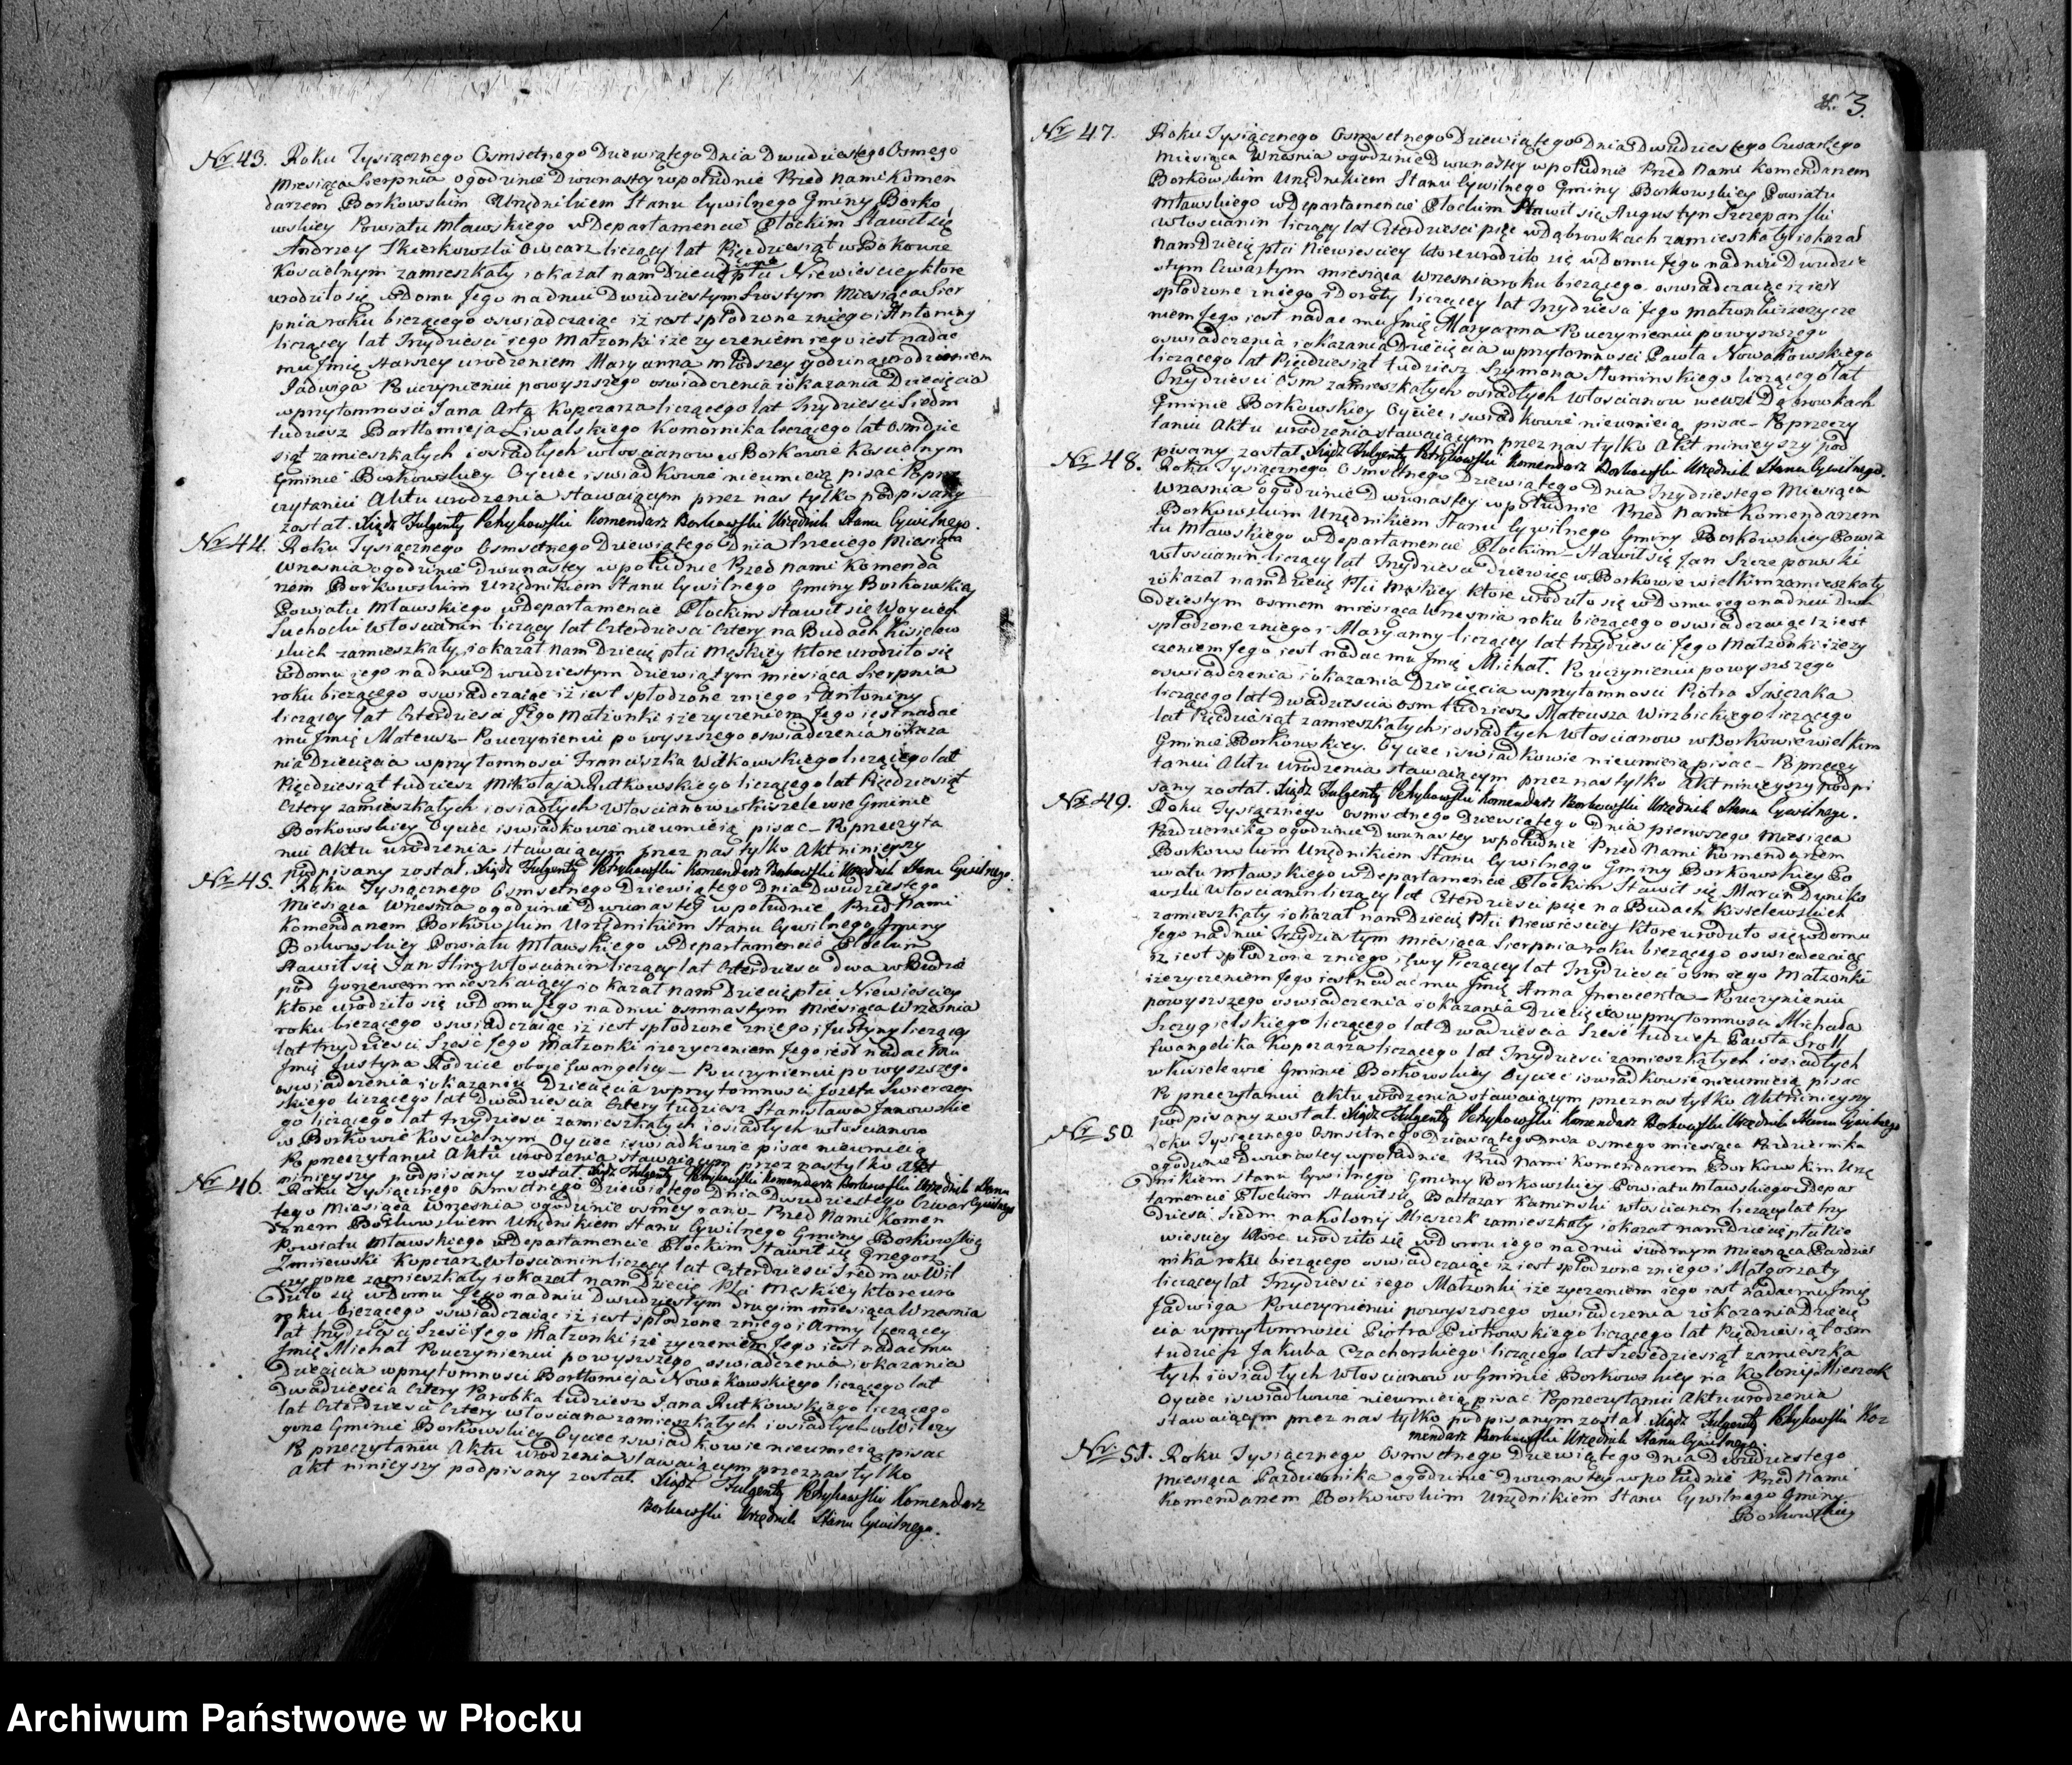 Nr 43. Roku Tysiącznego Osmsetnego Dziewiątego Dnia Dwudziestego Osmego
Miesiąca Sierpnia o godzinie Dwunastey w południe Przed Nami Komen
darzem Borkowskim Urzędnikiem Stanu Cywilnego Gminy Borko
wskiey Powiatu Mławskiego w Departamencie Płockim Stawił się
Andrzey Skierkowski Owczarz liczący lat Pięcdziesiąt w Borkowie
Koscielnym zamieszkały i okazał nam Dzieci płci Niewiesciey które
urodziło się w Domu Jego na dniu Dwudziestym Szostym Miesiąca Sier
pnia roku bieżącego oswiadczaiąc iż iest spłodzone z niego i Antoniny
liczącey lat Trzydziesci iego Małżonki i że życzeniem iego iest nadac
mu Jmię starszey urodzeniem Maryanna młodszey godziną urodzeniem
Jadwiga Po uczynieniu powyższego oswiadczenia i okazania Dziecięcia
w przytomnosci Jana Arta Kopczarza liczącego lat Trzydziesci Siedm
tudziesz Bartłomieja Liwalskiego Komornika liczącego lat Osmdzie
siąt zamieszkałych i osiadłych włoscianow w Borkowie Koscielnym
Gminie Borkowskiey Oyciec i swiadkowie nieumieią pisac Po prze
czytaniu Aktu urodzenia stawaiącym przez nas tylko podpisany
został. Xiądz Fulgenty Petrykowski Komendarz Borkowski Urzędnik Stanu Cywilnego.
Nr 44. Roku Tysiącznego Osmsetnego Dziewiątego Dnia Trzeciego Miesiąca
Wrzesnia o godzinie Dwunastey w południe Przed Nami Komenda
rzem Borkowskim Urzędnikiem Stanu Cywilnego Gminy Borkowskiey
Powiatu Mławskiego w Departamencie Płockim stawił się Woyciech
Suchocki Włoscianin liczący lat Czterdziesci Cztery na Budach Kisielew
skich zamieszkały i okazał nam Dziecię płci Męskiey które urodziło się
w domu iego na dniu Dwudziestym dziewiątym miesiąca Sierpnia
roku bieżącego oswiadczaiąc iż iest spłodzone z niego i Antoniny
liczącey lat Czterdziesci Jego Małżonki i że życzeniem Jego iest nadac
mu Jmię Mateusz – Po uczynieniu powyższego oswiadczenia i okaza
nia Dziecięcia w przytomnosci Franciszka Witkowskiego liczącego lat
Pięcdziesiąt tudziesz Mikołaja Rutkowskiego liczącego lat Pięcdziesiąt
Cztery zamieszkałych i osiadłych Włoscianow w Kiszelewie Gminie
Borkowskiey Oyciec i swiadkowie nieumieią pisac – Po przeczyta
niu Aktu urodzenia stawaiącym przez nas tylko Akt ninieyszy
podpisany został. Xiądz Fulgenty Petrykowski Komendarz Borkowski Urzędnik Stanu Cywilnego.
Nr 45. Roku Tysiącznego Osmsetnego Dziewiątego Dnia Dwudziestego
Miesiąca Wrzesnia o godzinie Dwunastey w południe Przed Nami
Komendarzem Borkowskim Urzędnikiem Stanu Cywilnego Gminy
Borkowskiey Powiatu Mławskiego w Departamencie Płockim
stawił się Jan Włoscianin liczący lat Czterdziesci dwa w Budzie
pod mieszkaiący i okazał nam Dziecię płci Niewiesciey
które urodziło się w domu Jego na dniu osmnastym Miesiąca Wrzesnia
roku bieżącego oswiadczaiąc iż iest spłodzone z niego i Justyny liczącey
lat trzydziesci Szesc Jego Małżonki i że życzeniem Jego iest nadac mu
Jmię Justyna Rodzice oboje Ewangelicy – Po uczynieniu powyższego
oswiadczenia i okazaniu Dziecięcia w przytomnosci Jozefa Swierczen
skiego liczącego lat Dwadziescia Cztery tudziesz Stanisława Janowskie
go liczącego lat trzydziesci zamieszkałych i osiadłych włoscianow
w Borkowie Koscielnym Oyciec i swiadkowie pisac nieumieią
Po przeczytaniu Aktu urodzenia stawaiącym przez nas tylko Akt
ninieyszy podpisany został Xiądz Fulgenty Petrykowski Komendarz Borkowski Urzędnik Stanu
Cywilnego
Nr 46. Roku Tysiącznego Osmsetnego Dziewiątego Dnia Dwudziestego Czwar
tego Miesiąca Wrzesnia o godzinie osmey rano – Przed Nami Komen
darzem Borkowskiem Urzędnikiem Stanu Cywilnego Gminy Borkowskiey
Powiatu Mławskiego w Departamencie Płockim Stawił się Grzegorz
Zmijewski Kopczarz włoscianin liczący lat Czterdziesci Siedm w Wil
czygone zamieszkały i okazał nam Dziecię Płci Męskiey które uro
dziło się w Domu Jego na dniu Dwudziestym drugim miesiąca Wrzesnia
roku bieżącego oswiadczaiąc iż iest spłodzone z niego i Anny liczącey
lat trzydziesci Szesc Jego Małżonki i że życzeniem Jego iest nadac mu
Jmię Michał Po uczynieniu powyższego oswiadczenia i okazania
Dziecięcia w przytomnosci Bartłomieja Nowakowskiego liczącego lat
Dwadziescia Cztery Parobka tudziesz Jana Rutkowskiego liczącego
lat Czterdziesci Cztery włosciana zamieszkałych i osiadłych w Wilczy
gone Gminie Borkowskiey Oyciec i swiadkowie nieumieią pisac
Po przeczytaniu Aktu urodzenia stawaiącym przez nas tylko
Akt ninieyszy podpisany został. Xiądz Fulgenty Petrykowski Komendarz
Borkowski Urzędnik Stanu Cywilnego.
3.
Nr 47. Roku Tysiącznego Osmsetnego Dziewiątego Dnia Dwudziestego Czwartego
Miesiąca Wrzesnia o godzinie Dwunastey w południe Przed Nami Komendarzem
Borkowskim Urzędnikiem Stanu Cywilnego Gminy Borkowskiey Powiatu
Mławskiego w Departamencie Płockim Stawił się Augustyn Szczepanski
włoscianin liczący lat Czterdziesci pięc w Dąbrowkach zamieszkały i okazał
nam Dziecię płci Niewiesciey które urodziło się w Domu Jego na dniu Dwudzie
stym Czwartym miesiąca Wrzesnia roku bieżącego oswiadczaiąc iż iest
spłodzone z niego i Doroty liczącey lat Trzydziesci Jego małżonki i że życze
niem Jego iest nadac mu Jmię Maryanna Po uczynieniu powyższego
oswiadczenia i okazania Dziecięcia w przytomnosci Pawła Nowakowskiego
liczącego lat Pięcdziesiąt tudziesz Szymona Słominskiego liczącego lat
Trzydziesci Osm zamieszkałych osiadłych Włoscianow we wsi Dąbrowkach
Gminie Borkowskiey Oyciec i swiadkowie nieumieią pisac – Po przeczy
taniu Aktu urodzenia stawaiącym przez nas tylko Akt ninieyszy pod
pisany został. Xiądz Fulgenty Petrykowski Komendarz Borkowski Urzędnik Stanu Cywilnego.
Nr 48. Roku Tysiącznego Osmsetnego Dziewiątego Dnia Trzydziestego Miesiąca
Wrzesnia o godzinie Dwunastey w południe Przed Nami Komendarzem
Borkowskim Urzędnikiem Stanu Cywilnego Gminy Borkowskiey Powia
tu Mławskiego w Departamencie Płockim – Stawił się Jan Szczepowski
włoscianin liczący lat Trzydziesci dziewięc w Borkowie wielkim zamieszkały
i okazał nam Dziecię Płci Męskiey które urodziło się w Domu iego na dniu Dwu
dziestym osmem miesiąca Wrzesnia roku bieżącego oswiadczaiąc iż iest
spłodzone z niego i Maryanny liczącey lat trzydziesci Jego Małżonki i że ży
czeniem Jego iest nadac mu Jmię Michał. Po uczynieniu powyższego
oswiadczenia i okazania Dziecięcia w przytomnosci Piotra
liczącego lat Dwadziescia osm tudziesz Mateusza Wirzbickiego liczącego
lat Pięcdziesiąt zamieszkałych i osiadłych Włoscianow w Borkowie wielkim
Gminie Borkowskiey. Oyciec i swiadkowie nieumieią pisac – Po przeczy
taniu Aktu urodzenia stawaiącym przez nas tylko Akt ninieyszy podpi
sany został. Xiądz Fulgenty Petrykowski Komendarz Borkowski Urzędnik Stanu Cywilnego.
Nr 49. Roku Tysiącznego Osmsetnego Dziewiątego Dnia pierwszego Miesiąca
Pazdziernika o godzinie Dwunastey w południe Przed Nami Komendarzem
Borkowskim Urzędnikiem Stanu Cywilnego Gminy Borkowskiey Po
wiatu Mławskiego w Departamencie Płockim Stawił się Marcin Dyniko
wski Włoscianin liczący lat Czterdziesci pięc na Budach Kisielewskich
zamieszkały i okazał nam Dziecię Płci Niewiesciey które urodziło się w domu
Jego na dniu Trzydziestym Miesiąca Sierpnia roku bieżącego oswiadczaiąc
iż iest spłodzone z niego i Ewy liczącey lat Trzydziesci osm iego Małżonki
i że życzeniem Jego iest nadac mu Jmię Anna Jnnocenta – Po uczynieniu
powyższego oswiadczenia i okazania Dziecięcia w przytomnosci Michała
Szczygielskiego liczącego lat Dwadziescia Szesc tudziesz Pawła
Ewangelika Kopczarza liczącego lat Trzydziesci zamieszkałych i osiadłych
w Kisielewie Gminie Borkowskiey Oyciec i swiadkowie nieumieią pisac
Po przeczytaniu Aktu urodzenia stawaiącym przez nas tylko Akt ninieyszy
podpisany został. Xiądz Fulgenty Petrykowski Komendarz Borkowski Urzędnik Stanu Cywilnego
Nr 50. Roku Tysiącznego Osmsetnego Dziewiątego Dnia osmego miesiąca Pazdziernika
o godzinie Dwunastey w południe Przed Nami Komendarzem Borkowskim Urzę
dnikiem Stanu Cywilnego Gminy Borkowskiey Powiatu Mławskiego w Depar
tamencie Płockim Stawił się Baltazar Kaminski włoscianin liczący lat trzy
dziesci Siedm na Kolonij Mieszczk zamieszkały i okazał nam dziecię płci Nie
wiesciey które urodziło się w Domu iego na dniu siodmym miesiąca Pazdzier
nika roku bieżącego oswiadczaiąc iż iest spłodzone z niego i Małgorzaty
liczącey lat Trzydziesci iego Małżonki i że życzeniem iego iest nadac mu Jmię
Jadwiga Po uczynieniu powyższego oswiadczenia i okazania Dziecię
cia w przytomnosci Piotra Piotrowskiego liczącego lat Pięcdziesiąt osm
tudziesz Jakuba Czachorskiego liczącego lat Szescdziesiąt zamieszka
łych i osiadłych Włoscianow w Gminie Borkowskiey na Kolonij Mieszczk
Oyciec i swiadkowie nieumieią pisac Po przeczytaniu Aktu urodzenia
stawaiącym przez nas tylko podpisanym został. Xiądz Fulgenty Petrykowski Ko
mendarz Borkowski Urzędnik Stanu Cywilnego.
Nr 51. Roku Tysiącznego Osmsetnego Dziewiątego Dnia Dwudziestego
miesiąca Pazdziernika o godzinie Dwunastey w południe Przed Nami
Komendarzem Borkowskim Urzędnikiem Stanu Cywilnego Gminy
Borkowskiey
Archiwum Państwowe w Płocku